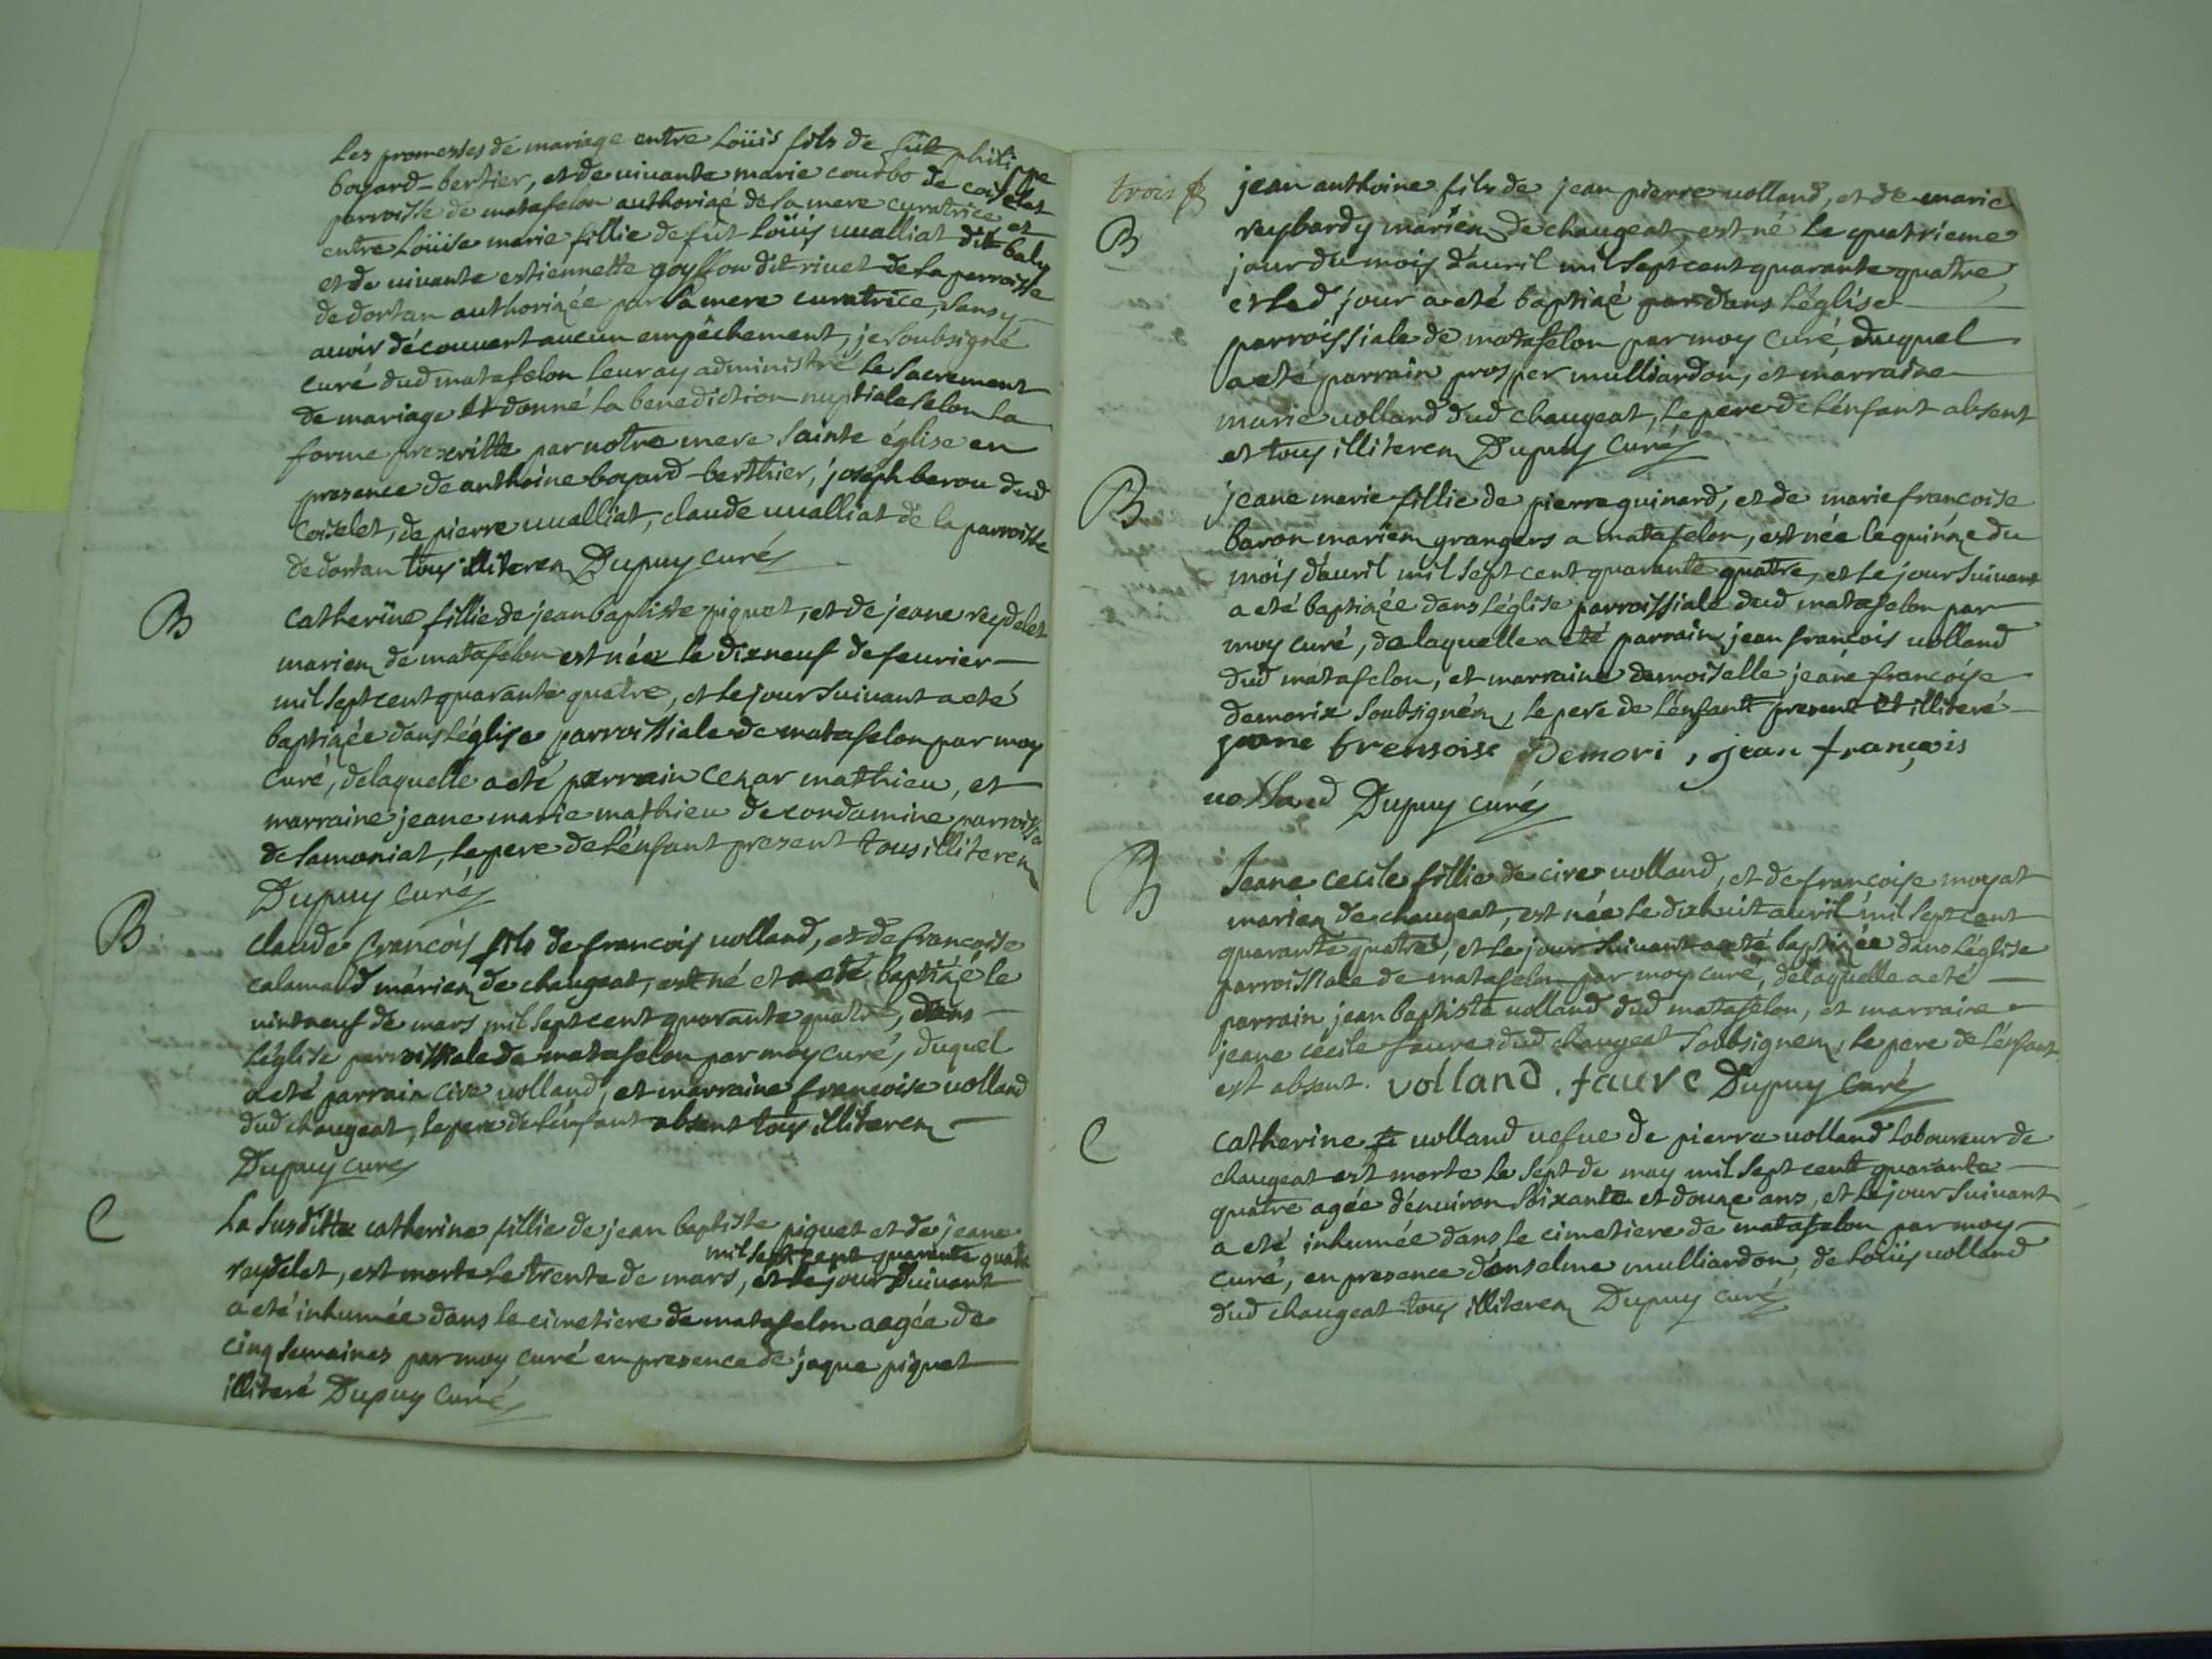 Les promesses de mariage entre Loüis fils de fût philippe
boyard-bertier, et de uiuante marie courbo de coiselet
parroisse de matafelon authorizé de sa mere curatrice et
entre Loüise marie fillie de fût Loüis uualliat dit baly
et de uiuante estiennette goyffon dit riuet de la parroisse
de dortan authorizée par sa mere curatrice, sans y
auoir découuert aucun empêchement, je soubsigné
curé dud matafelon leur ay administré le sacrement
de mariage et donné la benediction nuptiale selon la
forme prescritte par notre mere sainte église en
presence de anthoine boyard-berthier, joseph berou dud
Coiselet, de pierre uualliat, claude uualliat de la parroisse
de dortan tous illiterez Dupuy curé
B Catherine fillie de jean baptiste piquet, et de jeane reydelet
mariez de matafelon est née le dixneuf de feurier
mil sept cent quarante quatre, et le jour suiuant a eté
baptizée dans l'église parroissiale de matafelon par moy
Curé, de laquelle a eté parrain cezar mathieu, et
marraine jeane marie mathieu de condamine parroisse
de samoniat, le pere de l'énfant present tous illiterez
Dupuy curé
B Claude francois fils de francois uolland, et de francoise
calamand máriez de chaugeat, est né et a eté baptizé le
uintneuf de mars mil sept cent quarante quatre, dans
l'église parroissiale de matafelon par moy curé, duquel
a eté parrain cire uolland, et marraine francoise uolland
dud chaugeat, le pere de l'énfant absent tous illiterez
Dupuy curé
C La susditte catherine fillie de jean baptiste piquet et de jeane
mil sept cent quarante quatre
reydelet, est morte le trente de mars, et le jour suiuant
a eté inhumée dans le cimetiere de matafelon aagée de
cinq semaines par moy curé en presence de jaque piquet
illiteré Dupuy Curé
trois
B jean anthoine fils de jean pierre uolland, et de marie
reybardy mariéz de chaugeat, est né le quatrieme
jour du mois d'auril mil sept cent quarante quatre,
et led jour a eté baptizé par dans l'église
parroissiale de matafelon par moy curé, duquel
a eté parrain prosper mulliardon, et marraine
marie uolland dud chaugeat, le pere de l'énfant absent
et tous illiterez Dupuy Curé
B jeane marie fillie de pierre guinard, et de marie francoise
baron mariéz grangers a matafelon, est née le quinze du
mois d'auril mil sept cent quarante quatre, et le jour suiuant
a eté baptizée dans l'église parroissiale dud matafelon par
moy curé, de laquelle a eté parrain jean francois uolland
dud matafelon, et marraine demoiselle jeane francoise
demorix soubsignéz, le pere de l'énfant present et illiteré
jeane frensoise Demori, jean françois
uolland Dupuy curé
B Jeane cecile fillie de cire uolland, et de francoise moyat
mariez de chaugeat, est née le dixhuit auril mil sept cent
quarante quatre, et le jour suiuant a eté baptizée dans l'église
parroissiale de matafelon par moy curé, de laquelle a eté
parrain jean baptiste uolland dud matafelon, et marraine
jeane cecile faure dud chaugeat soubsignez, le pere de l'énfant
est absent. volland. faure Dupuy Curé
C catherine uolland uefue de pierre uolland laboureur de
chaugeat est morte le sept de may mil sept cent quarante
quatre agée d'enuiron soixante et douze ans, et le jour suiuant
a eté inhumée dans le cimetiere de matafelon par moy
curé, en presence d'enselme mulliardon, de Loüis uolland
dud chaugeat tous illiterez Dupuy curé